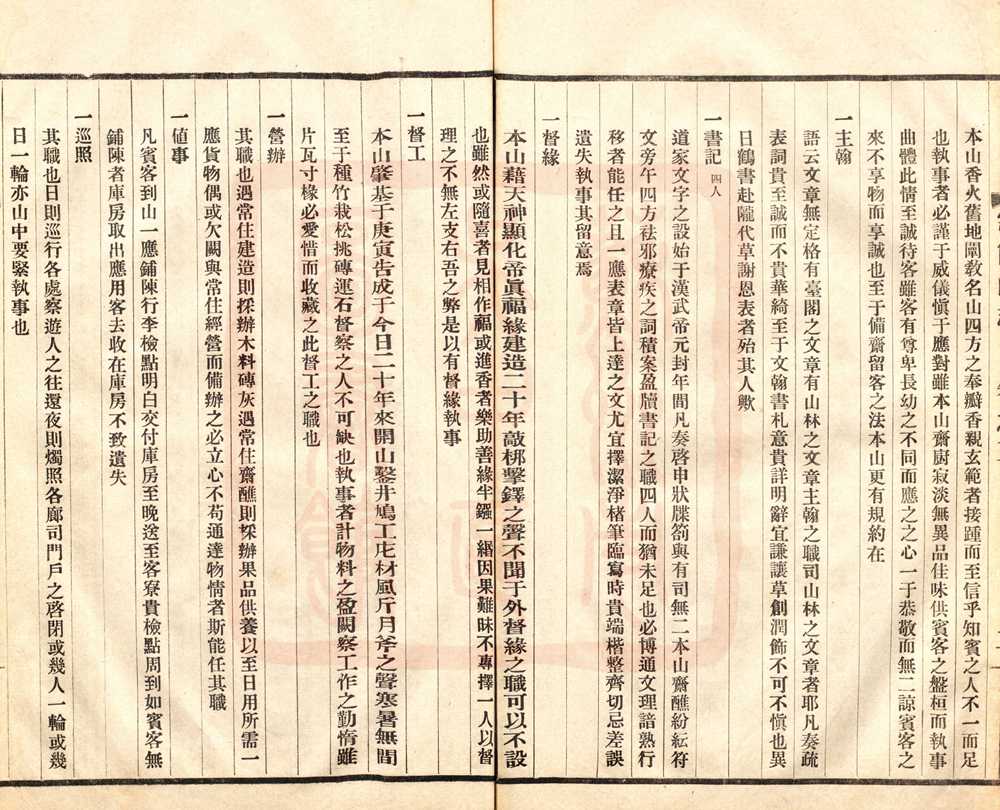 本山香火舊地闡敎名山四方之奉瓣香親玄範者接踵而至信乎知賓之人不一而足
也執事者必謹于威儀愼于應對雖本山齋廚寂淡無異品佳味供賓客之盤桓而執事
曲體此情至誠待客雖客有尊卑長幼之不同而應之之心一于恭敬而無二諒賓客之
來不享物而享誠也至于備齋留客之法本山更有規約在
一主翰
語云文章無定格有臺閣之文章有山林之文章主翰之職司山林之文章者耶凡奏疏
表詞貴至誠而不貴華綺至于文翰書札意貴詳明辭宜謙讓草創潤飾不可不愼也異
日鶴書赴隴代草謝恩表者殆其人歟
一書記四人
道家文字之設始于漢武帝元封年間凡奏啓申狀牒箚與有司無二本山齋醮紛紜符
文旁午四方祛邪療疾之詞積案盈牘書記之職四人而猶未足也必博通文理諳熟行
移者能任之且一應表章皆上達之文尤宜擇潔淨楮筆臨寫時貴端楷整齊切忌差誤
遺失執事其留意焉
一督緣
本山藉天神顯化帝眞福緣建造二十年敲梆擊鐸之聲不聞于外督緣之職可以不設
也雖然或隨喜者見相作福或進香者樂助善緣半鏹一緡因果難昧不專擇一人以督
理之不無左支右吾之弊是以有督緣執事
一督工
本山肇基于庚寅告成于今日二十年來開山鑿井鳩工庀材風斤月斧之聲寒暑無間
至于種竹栽松挑磚運石督察之人不可缺也執事者計物料之盈闕察工作之勤惰雖
片瓦寸椽必愛惜而收藏之此督工之職也
一營辦
其職也遇常住建造則採辦木料磚灰遇常住齋醮則採辦果品供養以至日用所需一
應貨物偶或欠闕與常住經營而備辦之必立心不苟通達物情者斯能任其職
一値事
凡賓客到山一應鋪陳行李檢點明白交付庫房至晚送至客寮貴檢點周到如賓客無
鋪陳者庫房取出應用客去收在庫房不致遺失
一巡照
其職也日則巡行各處察遊人之往還夜則燭照各廊司門戶之啓閉或幾人一輪或幾
日一輪亦山中要緊執事也